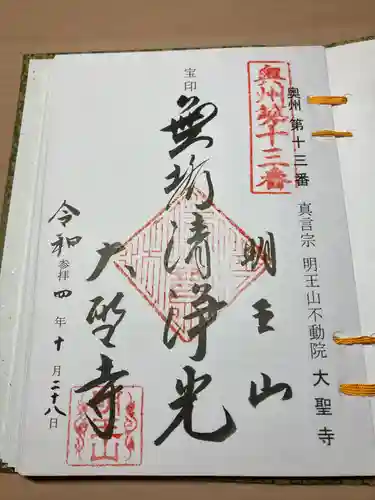 奥州 第十三番
真言宗 明王山不動院 大聖寺
奥州第十三番
明王山
宝印
無垢清浄光
大聖寺
令和 参拝 四年 十月 二十八日